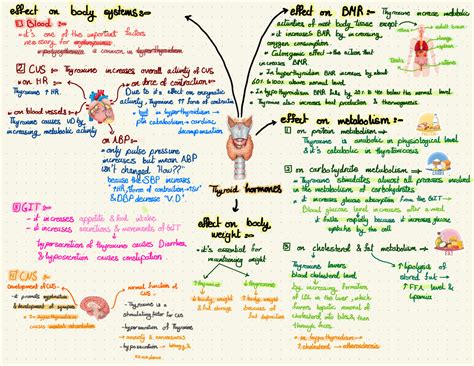 effect on body systems:-
1 Blood:-
it's one of the important factors
necessary for erythropoiesis
is common in hyperthyroidism
2 CVS:- Thyroxine increases overall activity of CVS
on HR
Thyroxine ↑ HR
on force of contraction
Due to its effect on enzymatic
activity, Thyroxine ↑ force of contraction
but in hyperthyroidism
catabolism → cardiac
decompensation
on blood vessels
Thyroxine causes VD by
increasing metabolic activity
on ABP
only pulse pressure
increases but mean ABP
isn't changed How??
because the SBP increases
"↑HR, force of contraction → ↑SV"
& DBP decrease "V.D"
3 GIT:-
it increases appetite & food intake
it increases secretions & movements of GIT
hypersecretion of Thyroxine causes Diarrhea
& hyposecretion causes constipation
4 CNS
Development of CNS:-
it promots myelination
& development of synapses
in Infants
causes mental retardation
normal function of
CNS:-
Thyroxine is a
stimulating factor for CNS
hypersecretion of Thyroxine
→ anxiety & nervousness
hyposecretion → lethargy &
somnolence
Thyroid hormones
effect on body
weight:-
it's essential for
maintaining weight
↑ thyroxine
↓ body weight
& fat storage
↓ thyroxine
↑ body weight
because of
fat deposition
effect on BMR
Thyroxine increases metabolic
activities of most body tissue except
by increasing
oxygen consumption
Calorigenic effect → this action that
increases BMR
In hyperthyroidism BMR increases by about
60% to 100% above normal level
In hypothyroidism BMR falls by 20 to 40% below the normal level
Thyroxine also increases heat production & thermogenesis
effect on metabolism:-
1 on protein metabolism
Thyroxine is anabolic in physiological level
& it's catabolic in thyrotoxicosis
2 on carbohydrate metabolism
Thyroxine stimulates almost all processes involved
in the metabolism of carbohydrates
it increases glucose absorption from the GIT →
Blood glucose level increases after a meal
but it falls rapidly because it increases glucose
uptake by the cell
3 on cholesterol & fat metabolism
Thyroxine lowers
blood cholesterol level
by increasing formation
of LDL in the liver, which
removes cholesterol
from the blood
cholesterol into bile & then
through feces
in hypothyroidism
↑ cholesterol → atherosclerosis
↑ lipolysis of
stored fat →
↑ FFA level &